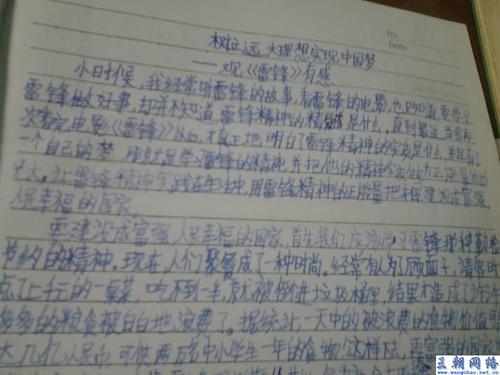 No.
Date
树立远大理想实现中国梦
——观《雷锋》有感
小时候，我经常听雷锋的故事，看雷锋的电影，也只知道要学习
雷锋做好事，却并不知道雷锋精神的精髓是什么。直到最近
次看完电影《雷锋》从后，才真正地明白了雷锋精神的实质是什么，并且有了
一个自己的梦，那就是学习雷锋的精神，并把他的精神
光大。让雷锋精神实践在生活中，用雷锋精神的正能量把祖国建设成富强、
人民幸福的国家。
要建设成富强、人民幸福的国家，首先我们应该学习雷锋那种勤俭
节约的精神。现在人们聚餐成了一种时尚，经常有人为了顾面子，请客吃
点了上千元的一桌菜，吃不到一半，就被倒进垃圾桶里，结果
多多的粮食被白白地浪费了。据统计，一天中的被浪费的食物价值
大几亿人民币，可供两万名中小学生一年的食物，这样下去，再富强的国家
王朝网络
www.wangchao.net.cn